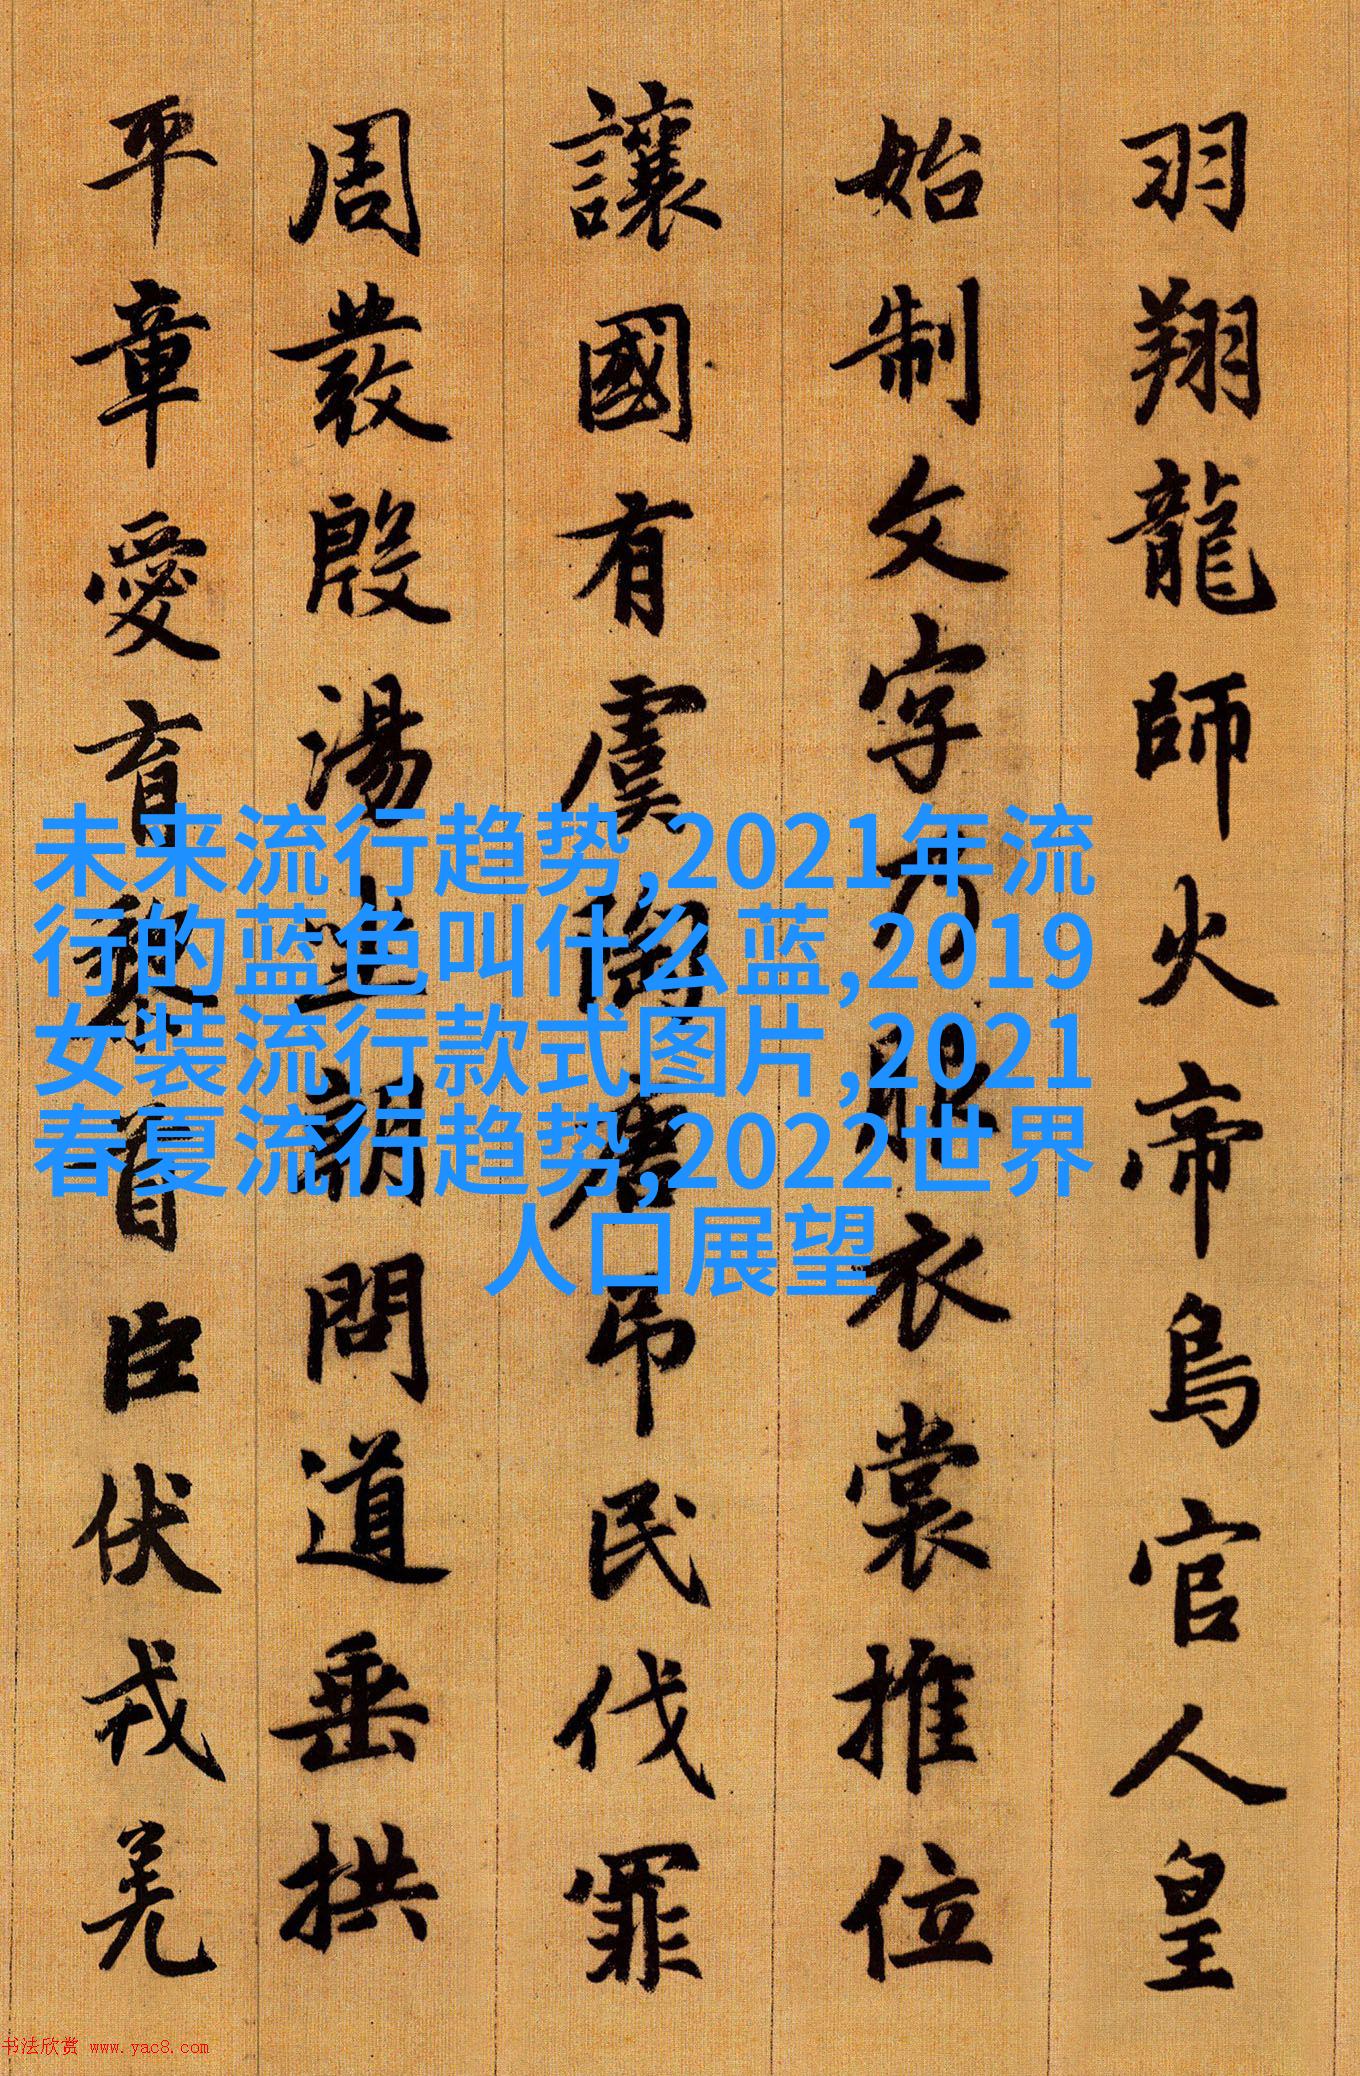 羽翔龍師火帝鳥官人皇
始制文字乃服衣裳推位
讓國有虞陶唐弔民伐罪
周發殷湯坐朝問道垂拱
平章愛育黎首臣伏戎羌
未来流行趋势,2021年流
行的蓝色叫什么蓝,2019
女装流行款式图片,2021
春夏流行趋势,2022世界
人口展望
书法欣赏 www.yac8.com